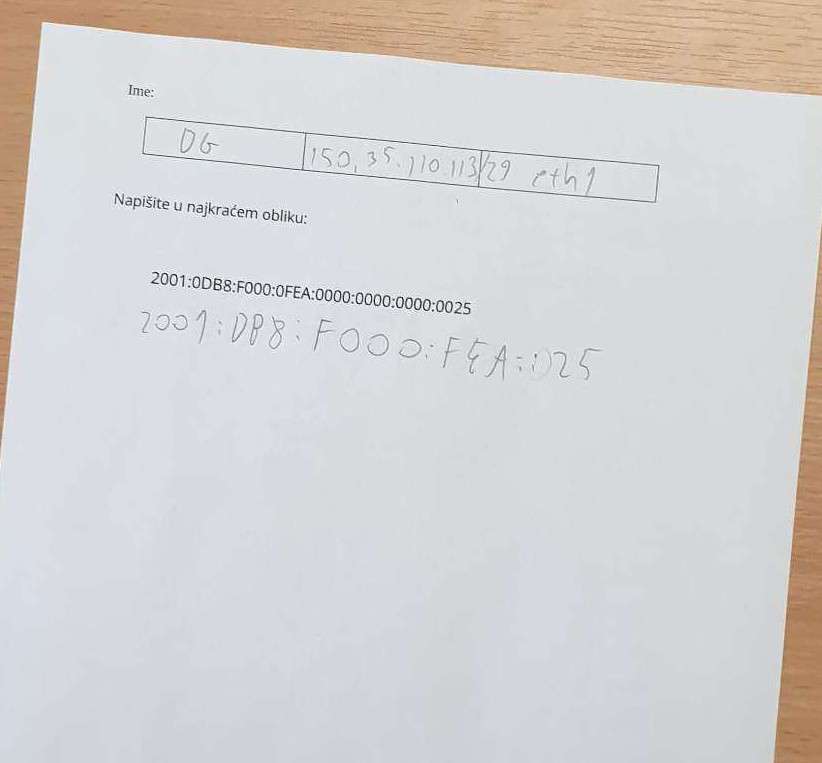 Ime:
DG 150.35.110.113/29 eth1
Napišite u najkraćem obliku:
2001:0DB8:F000:0FEA:0000:0000:0000:0025
2001:DB8:F000:FEA::025